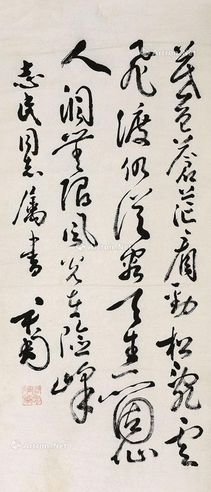 暮色蒼茫看勁松亂雲
飛渡仍從容天生一個仙
人洞無限風光在險峰
志民同志屬書